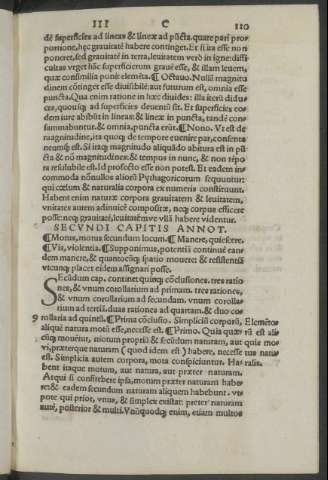 III C 110
dẽ superficies ad lineas & lineæ ad pũcta. quare pari pro
portione, hęc grauitatẽ habere continget. Et si ita esse non
poneret, sed grauitatẽ in terra, leuitatem verò in igne: diffi
cultas vrget hãc superficierum grauẽ esse, & illam leuem,
quæ consimilia ponit elemẽta. ¶ Octauo. Nullã magnitu
dinem cõtinget esse diuisibilẽ: aut futurum est, omnia esse
puncta. Qua enim ratione in hæc diuides: illa iterũ diduc
ces, quousq; ad superficies deuentũ sit. Et superficies eo-
dem iure abibũt in lineas: & lineæ in puncta, tandẽ con-
summabuntur. & omnia, puncta erũt. ¶ Nono. Vt est de
magnitudine, ita quoq; de tempore euenire par, consenta
neumq; est. Si itaq; magnitudo aliquãdo abitura est in pũ
cta & nõ magnitudines: & tempus in nunc, & non tẽpo
ra resolubile est. Id profecto esse non potest. Et eadem in-
commoda nõnullos alios Pythagoricorum sequuntur:
qui cœlum & naturalia corpora ex numeris constituunt.
Habent enim naturæ corpora grauitatem & leuitatem,
vnitates autem adinuicẽ compositæ, neq; corpus efficere
posse: neq; grauitatẽ, leuitatémve vllã habere videntur.
SECVNDI CAPITIS ANNOT.
¶ Motus, motus secundum locum. ¶ Manere, quiescere.
¶ Vis, violentia. ¶ Supponimus, potentiã continuè ean-
dem manere, & quantocũq; spatio mouere: & resistentiã
vtcunq; placet eidem assignari posse.
Secũdum cap. continet quinq; cõclusiones. tres ratio
nes, & vnum corollarium ad primam. tres rationes,
& vnum corollarium ad secundam. vnum corolla-
rium ad tertiã. duas rationes ad quartam. & duo co-
rollaria ad quintã. ¶ Prima cõclusio. Simplicis corporis, Elemẽto
aliquẽ natura motũ esse, necesse est. ¶ Primo. Quia quæ
cũq; mouẽtur, motum propriũ & secũdum naturam, aut
quia præter naturam ( quod idem est ) habere, necesse
est. Simplicia autem corpora, mota conspiciuntur. Ha-
bent itaque motum, aut natura, aut præter naturam.
Atqui si consistebet ipsa, motum præter naturam habe-
re: & eadem secundum naturam aliquem habebunt. vt
pote qui prior, vnus, & simplex existat: præter naturam
autẽ, posterior & multi. Vnũquodq; enim, etiam multos